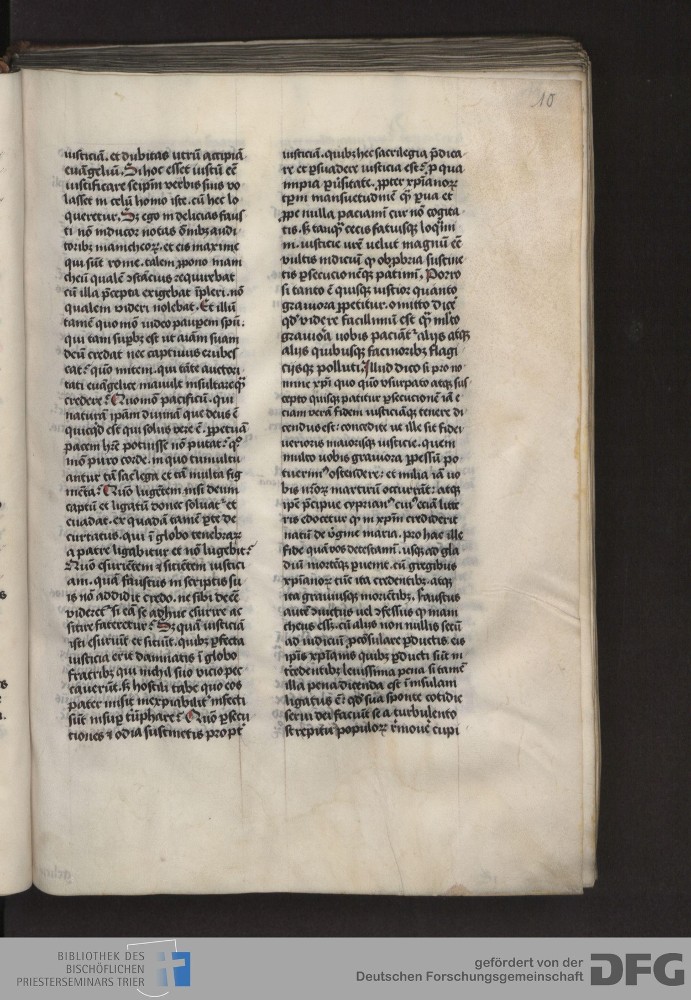 10
iusticiā. et dubitas utrū accipiā
euāgeliū. Si hoc esset iustū eē
iustificare seip̄m verbis suis vo
lasset in celū homo iste. cū hec lo
queretur. Sꝫ ego in delicias faus
ti nō inducor notas ōnibꝫ audi
toribꝫ manicheoꝝ. et eis maxime
qui sūt rome. talem ꝓpono mani
cheū qualē ꝯstācius requirebat
cū illa p̄cepta exigebat īpleri. nō
qualem videri nolebat. Et illū
tamē quomō video paupem spū.
qui tam supbꝫ est ut aīam suam
deū credat nec captiuus erubes
cat? quō mitem. qui tāte auctori
tati euāgelice mauult insultare qͣ
credere? Quomō pacificū. qui
naturā ip̄am diuinā que deus ē
quicqͥd est qui solus vere ē. ꝑpetuā
pacem hr̄e potuisse nō putat? qͦ
mō puro corde. in quo tumultu
antur tā sacͥlega et tā multa fig
mēta? Quō lugētem nisi deum
captū et ligatū donec soluatͬ et
euadat. ex quadā tamē ꝑte de
curtatus. qui ī globo tenebraꝝ
a patre ligabitur et nō lugebitͬ?
Quō esuriētem ⁊ sitiētem iustici
am. quā faustus in scriptis su
is nō addidit credo. ne sibi deeē
videretͬ si eā se adhuc esurire ac
sitire fateretur? Sꝫ quā iusticiā
isti esuriūt et sitiūt. quibꝫ ꝑfecta
iusticia erit damnatis ī globo
fratribꝫ qui nichil suo vicio pec
cauerūt. sꝫ hostili tabe quo eos
pater misit inexpiabilitͬ infecti
sūt insup tͥūphare? Quō ꝑsecu
tiones ⁊ odia sustinetis proptͬ
iusticiā. quibꝫ hec sacrilegia p̄dica
re et ꝑsuadere iusticia est? ꝓ qua
impia ꝑūsitate. ꝓpter xp̄ianoꝝ
tp̄m mansuetudinē ꝙ ꝑua et
ꝓpe nulla paciamī cur nō cogita
tis. sꝫ tanqͣ cecis fatuisqꝫ loqͥmi
ni. iusticie vr̄e velut magnū eē
vultis indiciū ꝙ obꝓbria sustine
tis ꝑsecucionēqꝫ patimī. Porro
si tanto ē quisqꝫ iustior quanto
grauiora ꝑpetitur. omitto dicē
qd̓ videre facillimū est qͣ mlͭo
grauioͣa vobis paciātͬ alijs atqꝫ
alijs quibusqꝫ facinoribꝫ flagi
cijsqꝫ polluti. Illud dico si pro no
mine xp̄i quo quō vsurpato atqꝫ sus
cepto quisqꝫ patitur ꝑsecucionē iā e
ciam verā fidem iusticiāqꝫ tenere di
cendus est. concedite ut ille sit fidei
verioris maiorisqꝫ iusticie. quem
multo vobis grauiora ꝑpessū po
tuerimꝰ ostendere. et milia iā vo
bis nr̄oꝝ martirū occurrāt. atqꝫ
ip̄e p̄cipue cyprianꝰ cuiꝰ eciā litte
ris edocetur ꝙ in xp̄m crediderit
natū de v̓gine maria. pro hac ille
fide quā vos detestamī. usqꝫ ad gla
diū mortēqꝫ ꝑuenit. cū gregibus
xp̄ianoꝝ tūc ita credentibꝫ. atqꝫ
ita grauiusqꝫ moriētibꝫ. Faustus
autē ꝯuictus uel ꝯfessus ꝙ mani
cheus eēt. cū alijs non nullis secū
ad iudiciū ꝓcōsulare ꝓductis. eis
ip̄is xp̄ianis quibꝫ ꝑducti sūt in
tͥcedentibꝫ leuissima pena si tamē
illa pena dicenda est ī insulam
ligatus ē? qd̓ sua sponte cotidie
serui dei faciūt se a turbulento
strepitu populoꝝ rͤmouē cupi
BIBLIOTHEK DES
BISCHÖFLICHEN
PRIESTERSEMINARS TRIER
gefördert von der
Deutschen Forschungsgemeinschaft
DFG